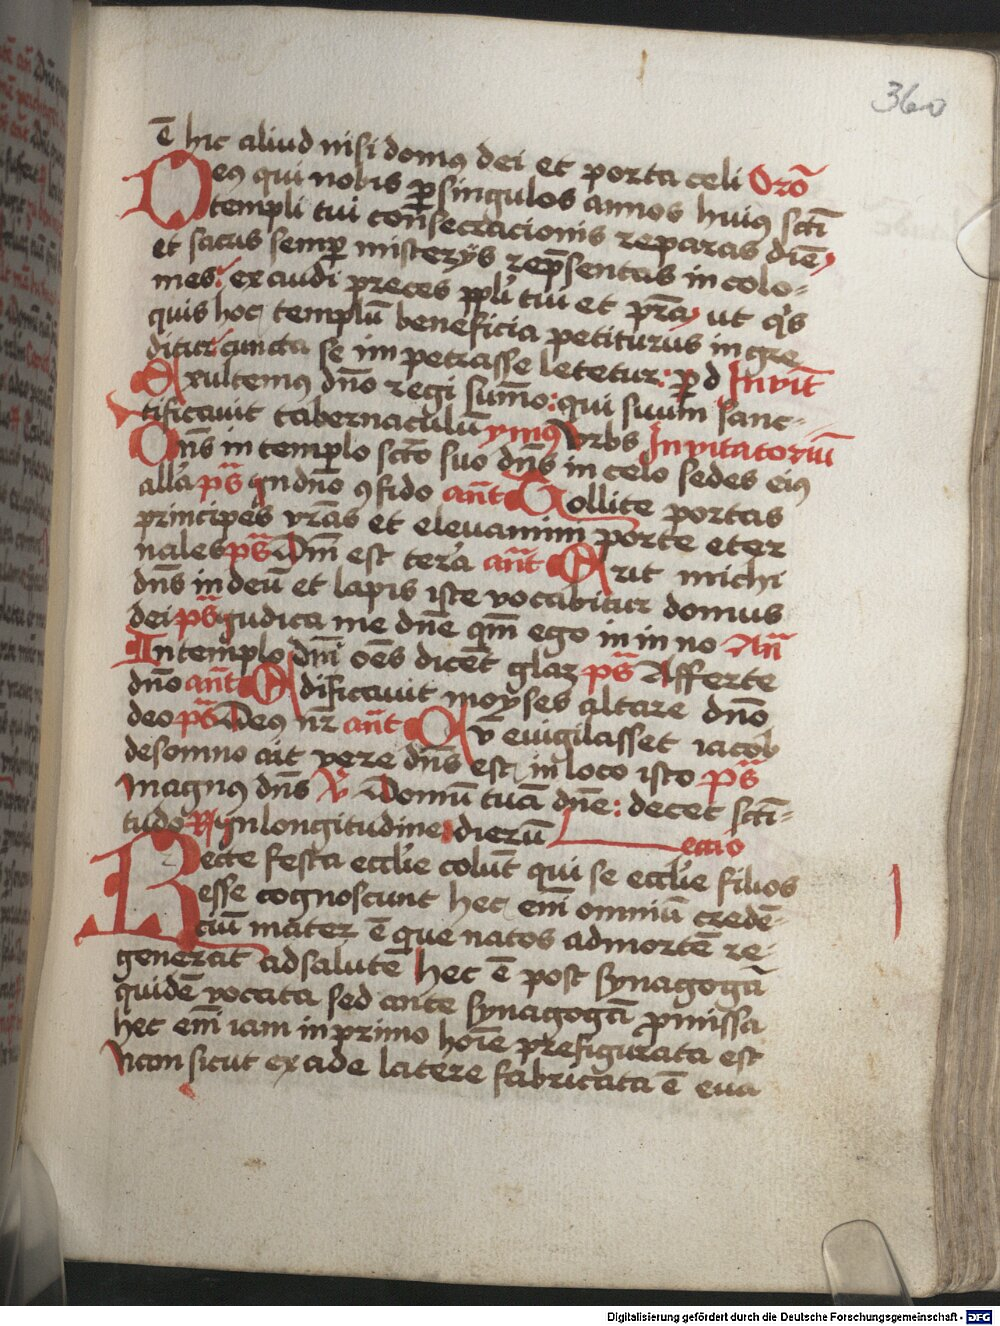 360
ē hic aliud nisi domꝰ dei et porta celi Orõ
Deꝰ qui nobis ꝑ singulos annos huiꝰ scti
templi tui consecracionis reparas diē
et sacris semꝑ misterÿs rep̄sentas in colo-
mes: exaudi preces ppli tui et p̄ra ut q̇s
quis hoc templū beneficia petiturus ingre
ditur cuncta se impetrasse letetur: ꝑ d Invit
Exultemꝰ dn̄o regi sum̄o: qui suum sanc-
tificauit tabernaculū ymꝰ Vrbs Inuitatoriū
Dn̄s in templo scto suo dn̄s in celo sedes eiꝰ
alla ps̄ In dn̄o ꝯfido ant̄ Tollite portas
principes vr̄as et eleuamini porte eter
nales ps̄ Dn̄i est terra ant̄ Erit michi
dn̄s in deū et lapis iste vocabitur domus
dei ps̄ Iudica me dn̄e qm̄ ego in in no An̄
In templo dn̄i oēs dicēt gl̄aꝫ ps̄ Afferte
dn̄o ant̄ Edificauit moyses altare dn̄o
deo ps̄ Deꝰ nr̄ ant̄ Cū euigilasset iacob
de somno ait vere dn̄s est in loco isto ps̄
Magnꝰ dn̄s V̄ Domū tuā dn̄e: decet scti-
tudo R̄ In longitudine dierū Leccio
Recte festa eccl̄ie colūt qui se eccl̄ie filios
esse cognoscunt hec em̄ omniū credē-
ciū mater ē que natos ad mortē re-
generat ad salutē hec ē post synagogā
quidē vocata sed ante synagogā ꝓmissa
hec em̄ iam in primo hoīe prefigurata est
Non sicut ex ade latere fabricata ē eua
Digitalisierung gefördert durch die Deutsche Forschungsgemeinschaft - DFG